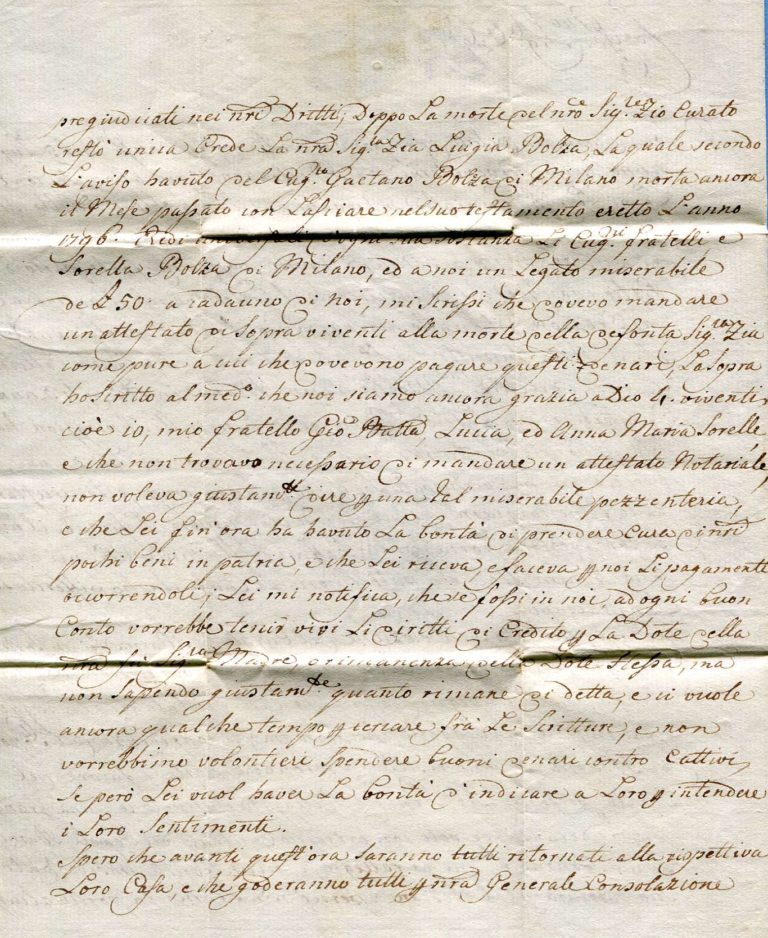 pregiudicati nei nri Dritti, Doppo La morte del nro Sig.re Zio Curato
restò unica Erede La nra Sig.ra Zia Luigia Bolza, La quale secondo
L'aviso havuto del Cug.no Gaetano Bolza di Milano morta ancora
il Mese passato con Lasciare nel suo testamento eretto L'anno
1796. Eredi universali d'ogni sua sostanza Li Cug.ni fratelli e
Sorella Bolza di Milano, ed a noi un Legato miserabile
de £ 50. a cadauno di noi, mi scrissi che dovevo mandare
un attestato di sopra viventi alla morte della defonta Sig.ra Zia
come pure a cui che dovevono pagare questi denari, La sopra
ho scritto al med.o che noi siamo ancora grazia a Dio 4. viventi,
cioè io, mio fratello Gio. Batta, Lucia, ed Anna Maria Sorelle,
e che non trovavo necessario di mandare un attestato Notariale,
non voleva giustam.te dire p una tal miserabile pezzenteria,
e che Lei fin'ora ha havuto La bontà di prendere cura di nri
pochi beni in patria, e che Lei riceva, e faceva p noi Li pagamenti
occorrendoli; Lei mi notifica, che se fossi in noi, ad ogni buon
Conto vorrebbe tenir vivi Li diritti di Credito p La Dote della
nra Sig.ra Madre, o rimanenza della Dote stessa, ma
non sapendo giustam.te quanto rimane di detta, e ci vuole
ancora qualche tempo p cercare frà Le Scritture, e non
vorrebbimo volontieri spendere buoni denari contro Cattivi,
se però Lei vuol haver La bontà d'indicare a Loro p intendere
i Loro Sentimenti.
Spero che avanti quest'ora saranno tutti ritornati alla rispettiva
Loro Casa, e che goderanno tutti p nra Generale Consolazione